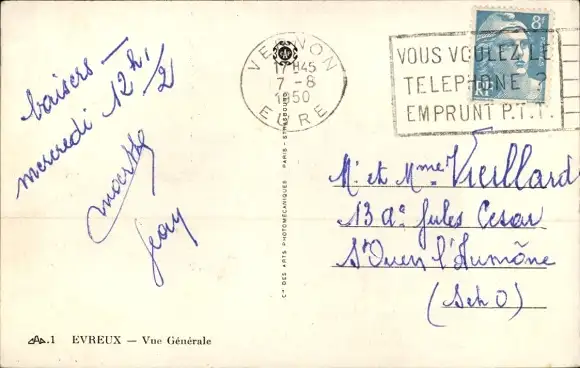 baisers —
mercredi 12h 1/2
Marthe
Jean
1 EVREUX — Vue Générale
Cie DES ARTS PHOTOMÉCANIQUES PARIS - STRASBOURG
VERNON
17H45
7 - 8
1950
EURE
8f
VOUS VOULEZ LE
TELEPHONE ?
EMPRUNT P.T.T.
Mr et Mme Vieillard
13 Jules Cesar
St Ouen l'Aumône
(S et O)